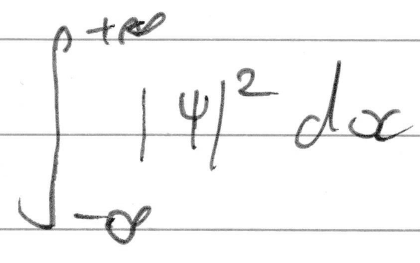 ∫_{-∞}^{+∞} |ψ|² dx